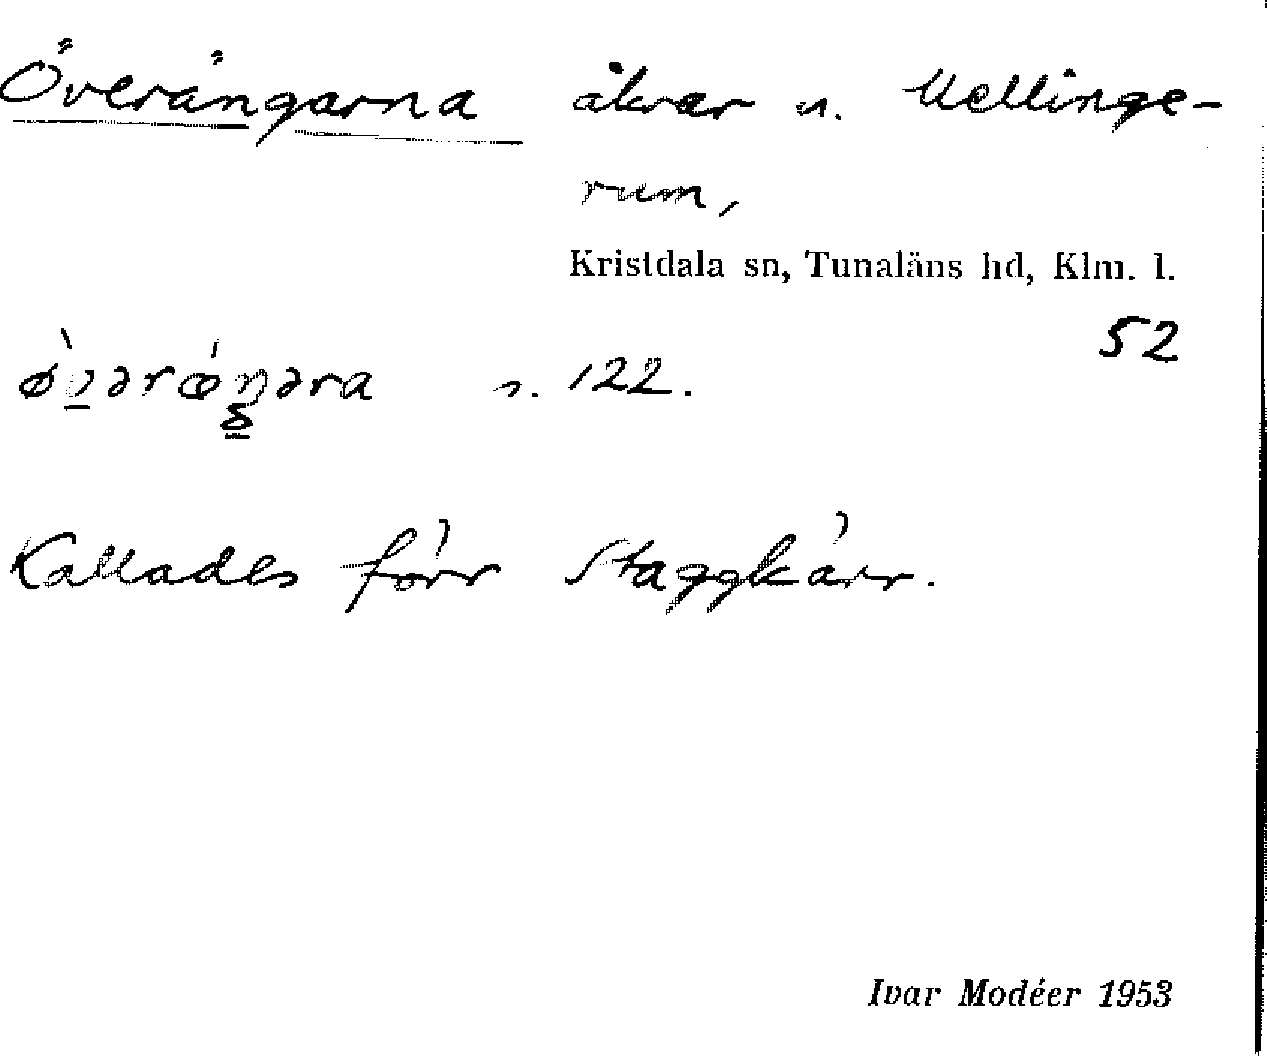 Överängarna åkrar u. Mellinge-
rum,
Kristdala sn, Tunaläns hd, Klm. l.
52
n. 122.
Kallades förr Staggkärr.
Ivar Modéer 1953